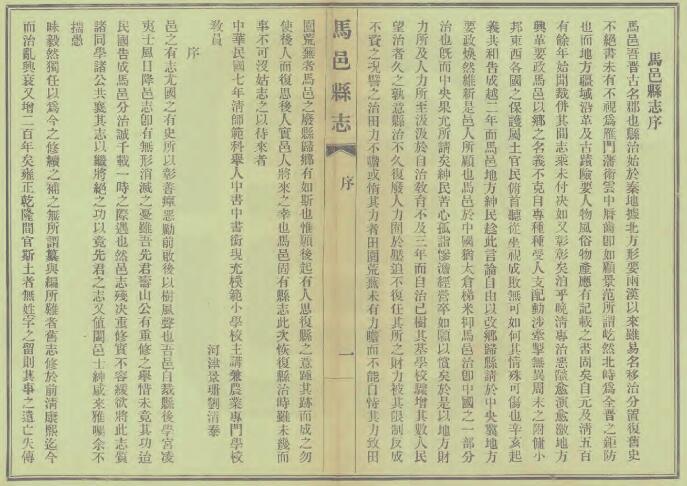 馬邑縣志序
馬邑吾晋古名郡也縣治始於秦地據北方形要兩漢以來雖易名移治分置復舊史
不絕書未有不視爲雁門藩衛雲中脣齒即如顧景范所謂屹然北峙爲全晋之鉅防
也而地方疆域沿革及古蹟險要人物風俗物產應有記載之書固矣自元及清五百
有餘年始間裁併其間志乘未付决如又彰彰矣泊乎晚清專治惡燄愈演愈激地方
興革要政馬邑以鄉之名義不克自專種種受人支配動涉牽掣無異周末之附傭小
邦東西各國之保護國土官民俯首聽從坐視成敗無可如何其情殊可傷也辛亥起
義共和告成越二年而馬邑地方紳民趁此言論自由以改鄉歸縣請於中央冀地方
要政煥然維新是邑人所願也馬邑於中國猶太倉梯米抑馬邑治卽中國之一部分
治也旣而中央果允所請矣紳民苦心孤詣慘澹經營卒如願以償矣於是以地方財
力所及人力所至汲汲於自治敎育不及三年而自治已樹其基學校驟增其數人民
望治者久之孰意縣治不久復廢人力囿於壓迫不復任其所之財力被其限制反成
不資之况譬之治田力不瞻或惰其力者田園荒蕪未有力瞻而不能自恃其力致田
馬邑縣志
序
一
園荒蕪者馬邑之廢縣歸鄉有如斯也惟願後起有人思復縣之意踵其蹟而成之勿
使後人而復思後人實邑人將來之幸也馬邑固有縣志此次恢復縣治時雖未幾而
事不可沒姑志之以待來者
中華民國七年清師範科舉人中書中書銜現充模範小學校主講兼農業專門學校
敎員
河津景珊劉清泰
序
邑之有志尤國之有史所以彰善癉惡勵前敗後以樹風聲也吾邑自裁縣後學宮凌
夷士風日降邑志卽有無形消滅之憂雖吾先君壽山公有重修之舉惜未竟其功迨
民國告成馬邑分治誠千載一時之際遇也然邑志殘决重修實不容緩欲將此志質
諸同學諸公共襄其志以繼將絕之功以竟先君之志又值闔邑士紳咸來雅囑余不
揣愚
昧毅然獨任以爲今之修續之補之無所謂纂與編所難者舊志修於前清康熙迄今
而治亂興衰又增二百年矣雍正乾隆間官斯土者無姓字之留則其事之遺亡失傳